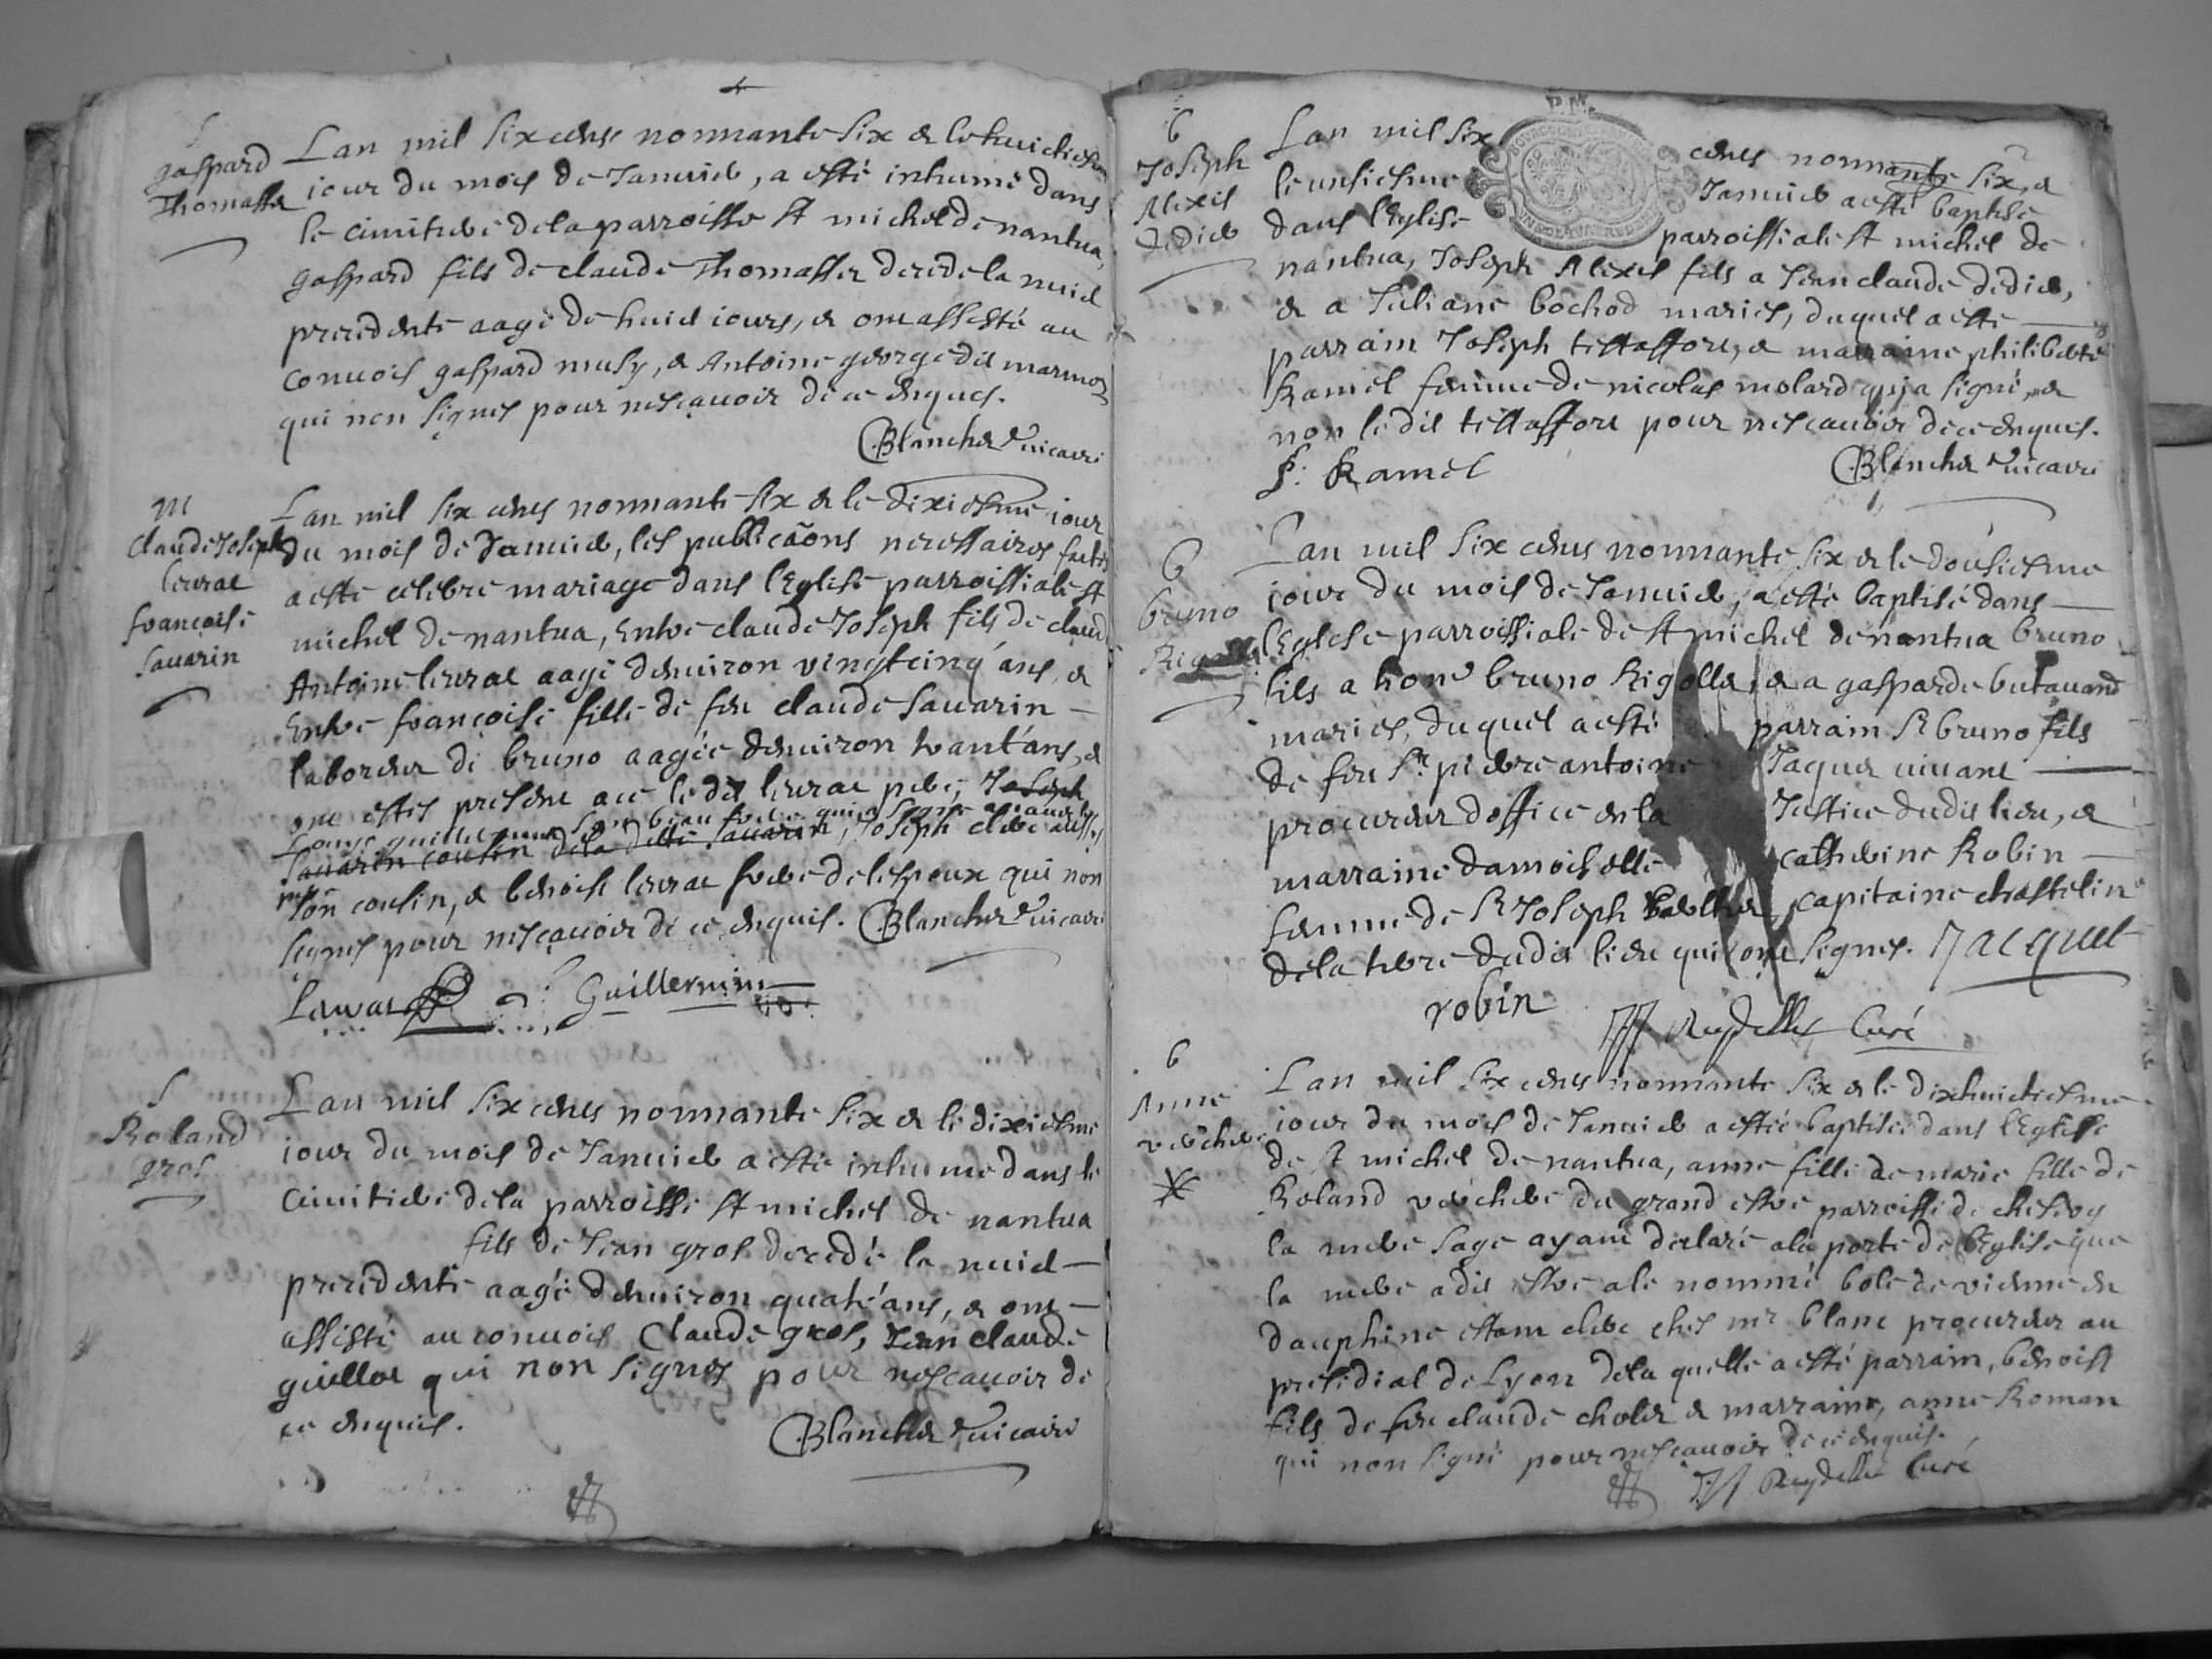 S
gaspard
Thomasset
Lan mil six cents nonnante six & le huictiesme
iour du mois de Januier, a esté inhumé dans
le cimitiere de la parroisse St michel de nantua,
gaspard fils de claude Thomasset decedé la nuict
precedente aagé de huict iours, & ont assisté au
conuois gaspard musy, & Antoine george dit marmoz
qui non signes pour ne scauoir de ce enquis.
Blanchet vicaire
m
Claude Joseph
leurat
francoise
sauarin
Lan mil six cents nonnante six & le dixiesme iour
du mois de Januier, les publicaõns necessaires faites
a esté celebré mariage dans l'Eglise parroissiale St
michel de nantua, Entre claude Joseph fils de claude
Antoine leurat aagé denuiron vingtcinq ans, &
Entre francoise fille de feu claude sauarin
laboreur de bruno aagée denuiron trant'ans, &
ont estés present auec le dit leurat pere, Joseph
Louys guillermin son beau frere qui a signé auec
sauarin cousin de la dite sauarin, Joseph clerc aussy
son cousin, & benoist leurat frere de lespoux qui non
signes pour ne scauoir de ce enquis. Blanchet vicaire
Leurat Guillermin
S
Roland
gros
Lan mil six cents nonnante six & le dixiesme
iour du mois de Januier a esté inhumé dans le
cimitiere de la parroisse St michel de nantua
fils de Jean gros decedé la nuict
precedente aagé denuiron quatre ans, & ont
assisté au conuois Claude gros, Jean claude
guillot qui non signes pour ne scauoir de
ce enquis.
Blanchet vicaire
b
Joseph
Alexis
dedier
Lan mil six cents nonnante six, &
le unsiesme Januier a esté baptisé
dans l'Eglise parroissiale St michel de
nantua, Joseph Alexis fils a Jean claude dedier,
& a Juliane bochod maries, duquel a esté
parrain Joseph tistassore, & marraine philiberte
Ramel femme de nicolas molard qui a signé, &
non le dit tistassore pour ne scauoir de ce enquis.
p. Ramel
Blanchet vicaire
b
bruno
Rigollet
Lan mil six cents nonnante six & le dousiesme
iour du mois de Januier, a esté baptisé dans
l'Eglise parroissiale de St michel de nantua bruno
fils a hon bruno Rigollet, & a gasparde butauand
maries, duquel a esté parrain Sr bruno fils
de feu Sr pierre antoine Jaquet viuant
procureur d'office en la Justice dudit lieu, &
marraine damoiselle catherine Robin
femme de Sr Joseph capitaine chastelin
de la terre dudit lieu qui ont signes. Jacquet
robin
Curé
b
Anne
verchere
Lan mil six cents nonnante six & le dixhuictiesme
iour du mois de Januier a esté baptisée dans l'Eglise
de St michel de nantua, anne fille de marie fille de
Roland verchere du grand estre parroisse de chesroy
la mere sage ayant declaré a la porte de l'Eglise que
la mere a dit estre a le nommé bole de vienne en
dauphine estant clerc ches mr blanc procureur au
presidial de Lyon de la quelle a esté parrain, benoist
fils de feu claude cholet & marraine, anne Roman
qui non signé pour ne scauoir de ce enquis.
Curé